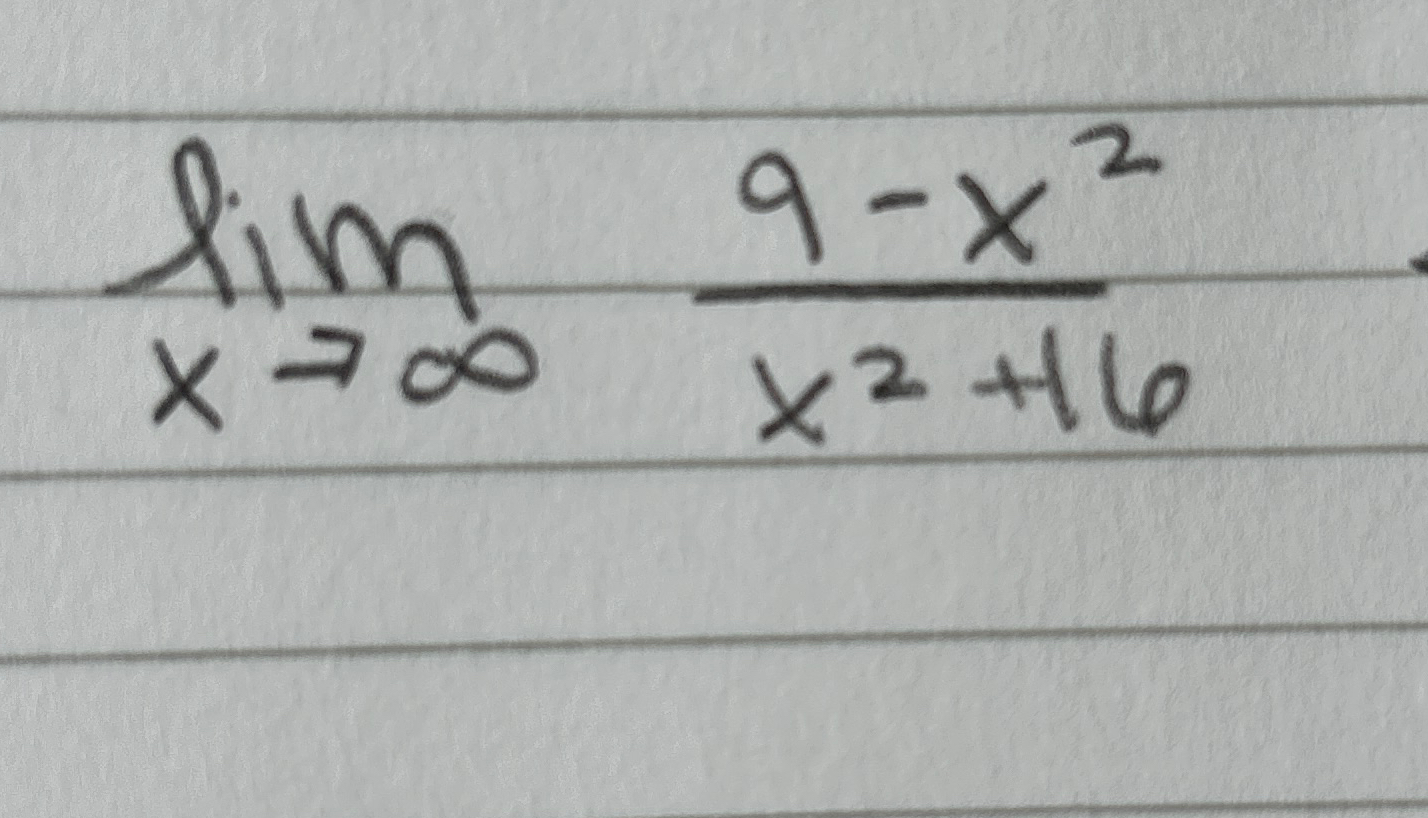 lim 9-x²
x→∞ x²+16